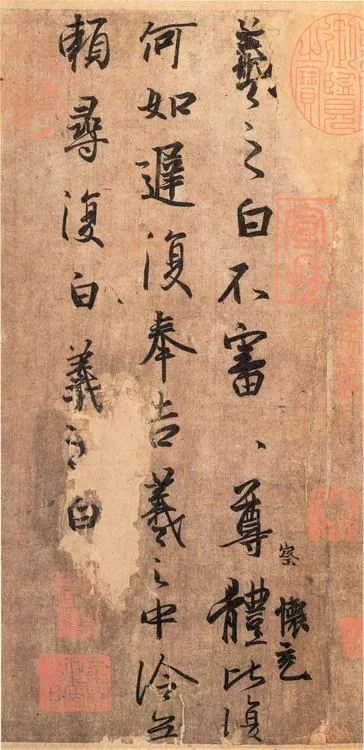 羲之白不審、尊體比復
何如遲復奉告羲之中冷無
賴尋復白羲之白
察
懷充